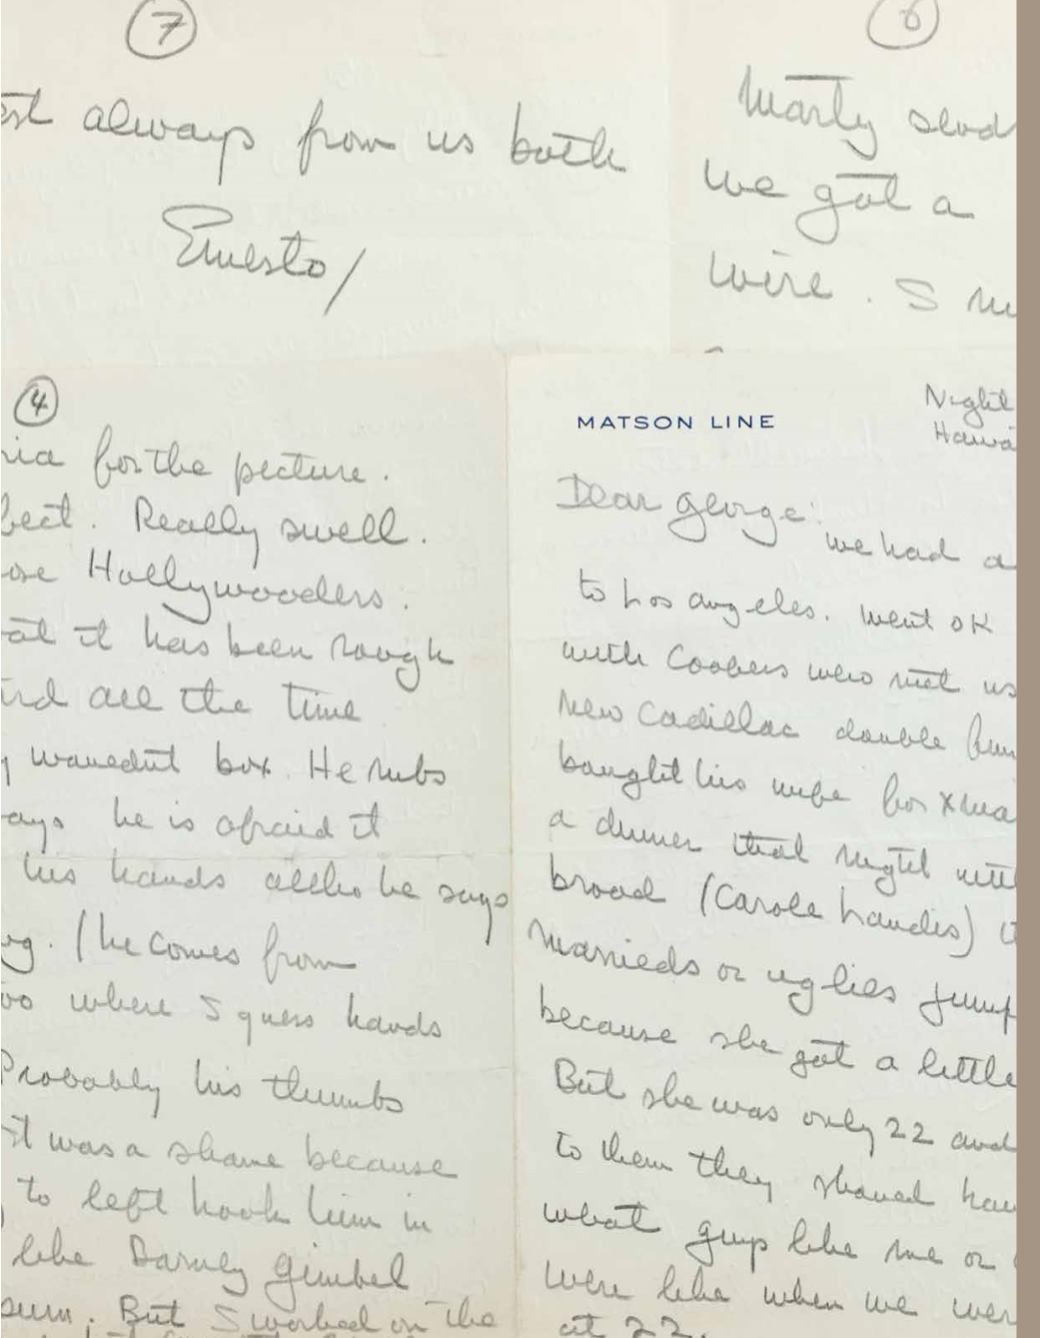 7
est always from us both
Ernesto/
6
Marty send
we got a
wire. I
4
for the picture.
fect. Really swell.
ose Hollywooders.
at it has been rough
all the time
y wouldn't box. He rubs
ays he is afraid it
his hands altho he says
(he comes from
where I guess hands
Probably his thumbs
it was a shame because
to left hook him in
like Barney Gimbel
But I worked on the
MATSON LINE
Night
Hawa
Dear George:
we had a
to Los Angeles. Went OK
with Coopers who met us
new Cadillac double
bought his wife for Xma
a dinner that night with
broad (Carole Landis)
Marrieds or uglies jump
because she got a little
But she was only 22 and
to them they should have
what guys like me or
were like when we wer
at 22.